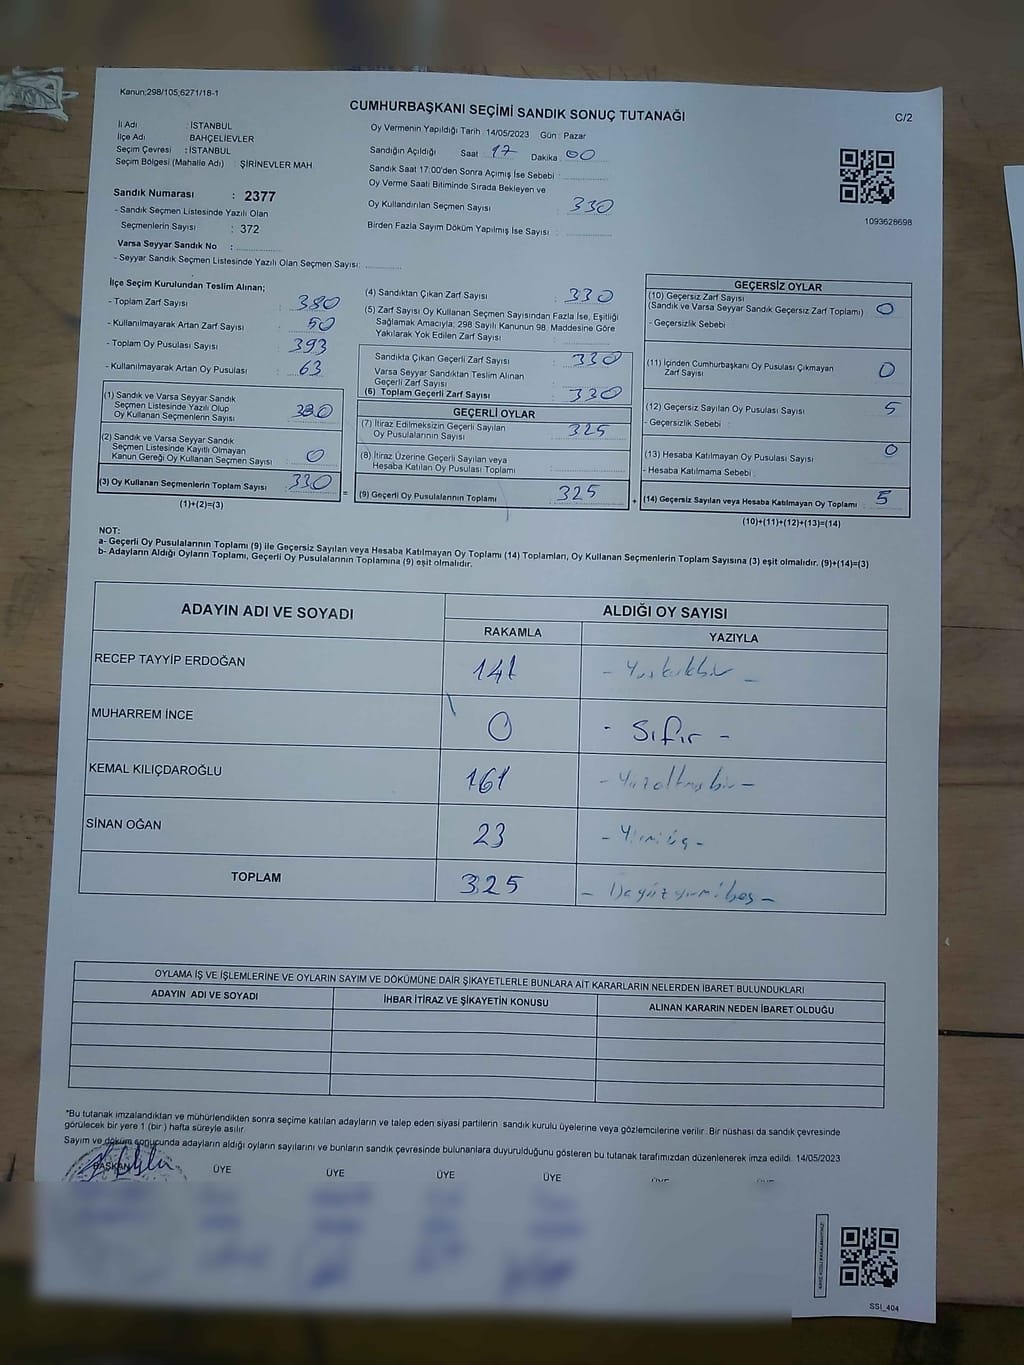 Kanun;298/105,6271/18-1
CUMHURBAŞKANI SEÇİMİ SANDIK SONUÇ TUTANAĞI
C/2
İl Adı : İSTANBUL
İlçe Adı : BAHÇELİEVLER
Seçim Çevresi : İSTANBUL
Seçim Bölgesi (Mahalle Adı) : ŞİRİNEVLER MAH.
Sandık Numarası : 2377
- Sandık Seçmen Listesinde Yazılı Olan
Seçmenlerin Sayısı : 372
Varsa Seyyar Sandık No :
- Seyyar Sandık Seçmen Listesinde Yazılı Olan Seçmen Sayısı:
Oy Vermenin Yapıldığı Tarih : 14/05/2023 Gün : Pazar
Sandığın Açıldığı Saat 17 Dakika 00
Sandık Saat 17:00'den Sonra Açımış İse Sebebi :
Oy Verme Saati Bitiminde Sırada Bekleyen ve
Oy Kullandırılan Seçmen Sayısı : 330
Birden Fazla Sayım Döküm Yapılmış İse Sayısı :
1093628698
İlçe Seçim Kurulundan Teslim Alınan;
- Toplam Zarf Sayısı : 380
- Kullanılmayarak Artan Zarf Sayısı : 50
- Toplam Oy Pusulası Sayısı : 393
- Kullanılmayarak Artan Oy Pusulası : 63
(1) Sandık ve Varsa Seyyar Sandık
Seçmen Listesinde Yazılı Olup
Oy Kullanan Seçmenlerin Sayısı : 330
(2) Sandık ve Varsa Seyyar Sandık
Seçmen Listesinde Kayıtlı Olmayan
Kanun Gereği Oy Kullanan Seçmen Sayısı : 0
(3) Oy Kullanan Seçmenlerin Toplam Sayısı : 330
(1)+(2)=(3)
=
(4) Sandıktan Çıkan Zarf Sayısı : 330
(5) Zarf Sayısı Oy Kullanan Seçmen Sayısından Fazla İse, Eşitliği
Sağlamak Amacıyla; 298 Sayılı Kanunun 98. Maddesine Göre
Yakılarak Yok Edilen Zarf Sayısı :
Sandıkta Çıkan Geçerli Zarf Sayısı : 330
Varsa Seyyar Sandıktan Teslim Alınan
Geçerli Zarf Sayısı :
(6) Toplam Geçerli Zarf Sayısı : 330
GEÇERLİ OYLAR
(7) İtiraz Edilmeksizin Geçerli Sayılan
Oy Pusulalarının Sayısı : 325
(8) İtiraz Üzerine Geçerli Sayılan veya
Hesaba Katılan Oy Pusulası Toplamı :
(9) Geçerli Oy Pusulalarının Toplamı : 325
+
GEÇERSİZ OYLAR
(10) Geçersiz Zarf Sayısı
(Sandık ve Varsa Seyyar Sandık Geçersiz Zarf Toplamı) : 0
- Geçersizlik Sebebi :
(11) İçinden Cumhurbaşkanı Oy Pusulası Çıkmayan
Zarf Sayısı : 0
(12) Geçersiz Sayılan Oy Pusulası Sayısı : 5
- Geçersizlik Sebebi :
(13) Hesaba Katılmayan Oy Pusulası Sayısı : 0
- Hesaba Katılmama Sebebi :
(14) Geçersiz Sayılan veya Hesaba Katılmayan Oy Toplamı : 5
(10)+(11)+(12)+(13)=(14)
NOT:
a- Geçerli Oy Pusulalarının Toplamı (9) ile Geçersiz Sayılan veya Hesaba Katılmayan Oy Toplamı (14) Toplamları, Oy Kullanan Seçmenlerin Toplam Sayısına (3) eşit olmalıdır. (9)+(14)=(3)
b- Adayların Aldığı Oyların Toplamı, Geçerli Oy Pusulalarının Toplamına (9) eşit olmalıdır.
ADAYIN ADI VE SOYADI
ALDIĞI OY SAYISI
RAKAMLA YAZIYLA
RECEP TAYYİP ERDOĞAN 141 - Yüzkırkbir -
MUHARREM İNCE 0 - Sıfır -
KEMAL KILIÇDAROĞLU 161 - Yüzaltmışbir -
SİNAN OĞAN 23 - Yirmiüç -
TOPLAM 325 - Üçyüzyirmibeş -
OYLAMA İŞ VE İŞLEMLERİNE VE OYLARIN SAYIM VE DÖKÜMÜNE DAİR ŞİKAYETLERLE BUNLARA AİT KARARLARIN NELERDEN İBARET BULUNDUKLARI
ADAYIN ADI VE SOYADI İHBAR İTİRAZ VE ŞİKAYETİN KONUSU ALINAN KARARIN NEDEN İBARET OLDUĞU
*Bu tutanak imzalandıktan ve mühürlendikten sonra seçime katılan adayların ve talep eden siyasi partilerin sandık kurulu üyelerine veya gözlemcilerine verilir. Bir nüshası da sandık çevresinde
görülecek bir yere 1 (bir) hafta süreyle asılır.
Sayım ve döküm sonucunda adayların aldığı oyların sayılarını ve bunların sandık çevresinde bulunanlara duyurulduğunu gösteren bu tutanak tarafımızdan düzenlenerek imza edildi. 14/05/2023
BAŞKAN ÜYE ÜYE ÜYE ÜYE
SSI_404